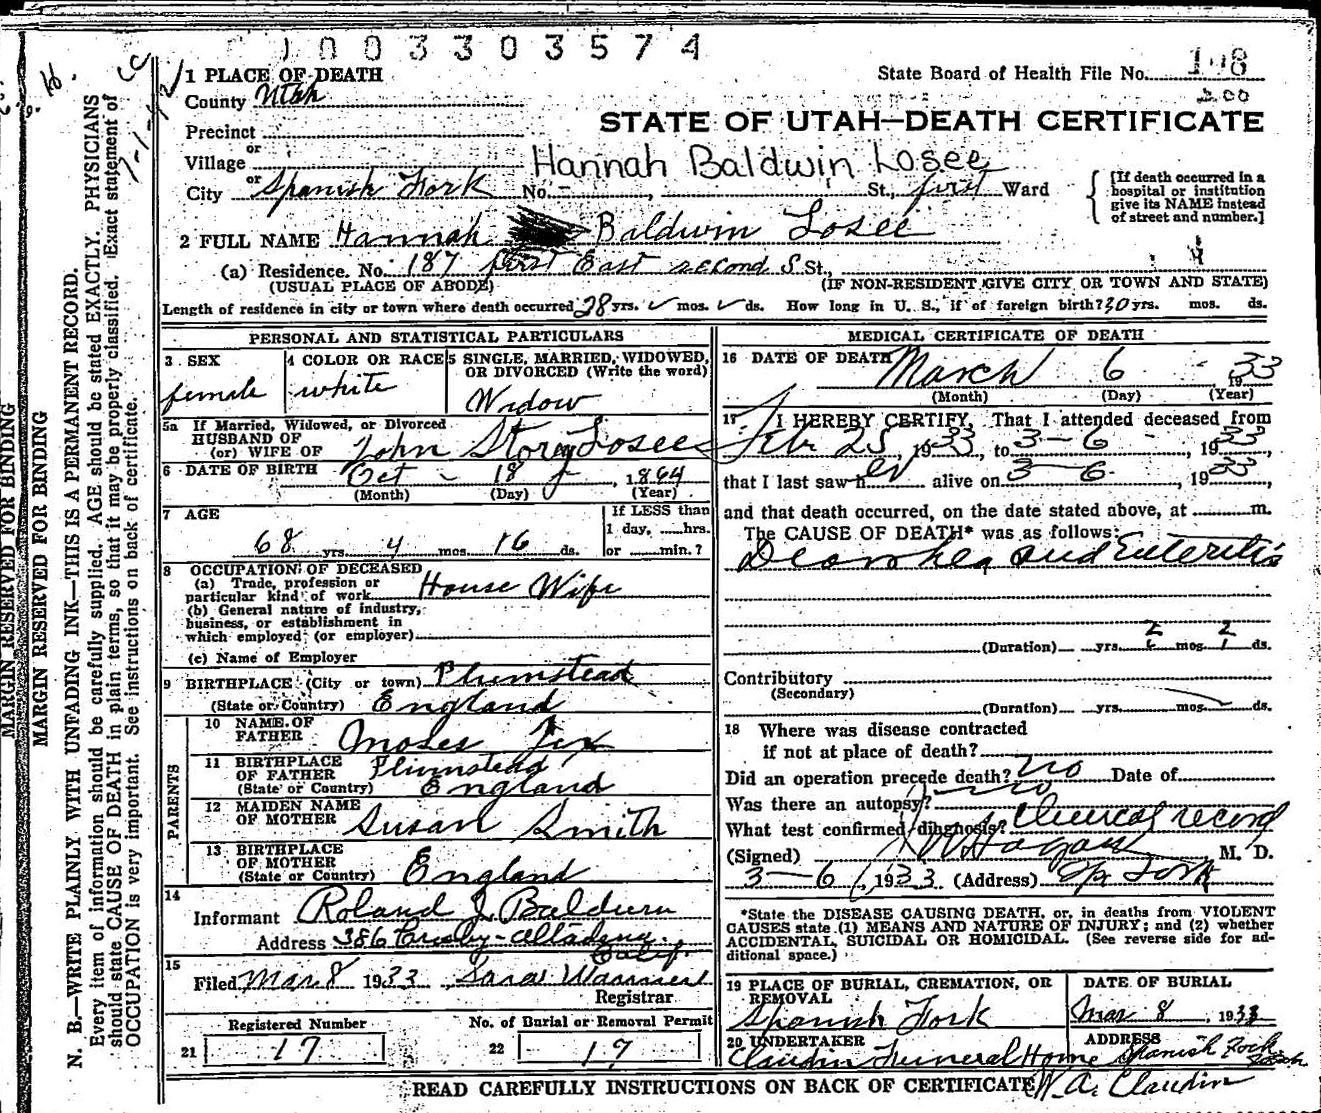 1003303574
1 PLACE OF DEATH
State Board of Health File No. 108
County Utah
200
STATE OF UTAH—DEATH CERTIFICATE
Precinct
or
Village
Hannah Baldwin Losee
or
City Spanish Fork No. - , St., first Ward
[If death occurred in a
hospital or institution
give its NAME instead
of street and number.]
2 FULL NAME Hannah Baldwin Losee
(a) Residence. No. 187 first East second S. St.,
(USUAL PLACE OF ABODE) (IF NON-RESIDENT GIVE CITY OR TOWN AND STATE)
Length of residence in city or town where death occurred 28 yrs. mos. ds. How long in U. S., if of foreign birth? 50 yrs. mos. ds.
PERSONAL AND STATISTICAL PARTICULARS
3 SEX
female
4 COLOR OR RACE
white
5 SINGLE, MARRIED, WIDOWED,
OR DIVORCED (Write the word)
Widow
5a If Married, Widowed, or Divorced
HUSBAND OF
(or) WIFE OF John Storey Losee
6 DATE OF BIRTH Oct - 18 , 1864
(Month) (Day) (Year)
7 AGE
68 yrs. 4 mos. 16 ds.
If LESS than
1 day, hrs.
or min.?
8 OCCUPATION OF DECEASED
(a) Trade, profession or
particular kind of work House Wife
(b) General nature of industry,
business, or establishment in
which employed (or employer)
(c) Name of Employer
9 BIRTHPLACE (City or town) Plumstead
(State or Country) England
PARENTS
10 NAME OF
FATHER Moses Fix
11 BIRTHPLACE
OF FATHER Plumstead,
(State or Country) England
12 MAIDEN NAME
OF MOTHER Susan Smith
13 BIRTHPLACE
OF MOTHER
(State or Country) England
14
Informant Roland J. Baldwin
Address 386 - Altadena
Calif.
15
Filed Mar 8 1933
Registrar
Registered Number
21 17
No. of Burial or Removal Permit
22 17
MEDICAL CERTIFICATE OF DEATH
16 DATE OF DEATH March 6 1933
(Month) (Day) (Year)
17 I HEREBY CERTIFY, That I attended deceased from
Feb 25, 1933, to 3-6, 1933
that I last saw her alive on 3-6, 1933,
and that death occurred, on the date stated above, at m.
The CAUSE OF DEATH* was as follows:
Diarrhea and Enteritis
(Duration) yrs. mos. ds.
Contributory
(Secondary)
(Duration) yrs. mos. ds.
18 Where was disease contracted
if not at place of death?
Did an operation precede death? no Date of
Was there an autopsy? no
What test confirmed diagnosis? Clinical record
(Signed) Hagan M. D.
3-6, 1933 (Address) Sp. Fork
*State the DISEASE CAUSING DEATH, or, in deaths from VIOLENT
CAUSES state (1) MEANS AND NATURE OF INJURY; and (2) whether
ACCIDENTAL, SUICIDAL OR HOMICIDAL. (See reverse side for ad-
ditional space.)
19 PLACE OF BURIAL, CREMATION, OR
REMOVAL
Spanish Fork
DATE OF BURIAL
Mar 8, 1933
20 UNDERTAKER
Claudin Funeral Home
ADDRESS
Spanish Fork
Utah
W. A. Claudin
READ CAREFULLY INSTRUCTIONS ON BACK OF CERTIFICATE
MARGIN RESERVED FOR BINDING
MARGIN RESERVED FOR BINDING
N. B.—WRITE PLAINLY WITH UNFADING INK—THIS IS A PERMANENT RECORD.
Every item of information should be carefully supplied. AGE should be stated EXACTLY. PHYSICIANS
should state CAUSE OF DEATH in plain terms, so that it may be properly classified. Exact statement of
OCCUPATION is very important. See instructions on back of certificate.